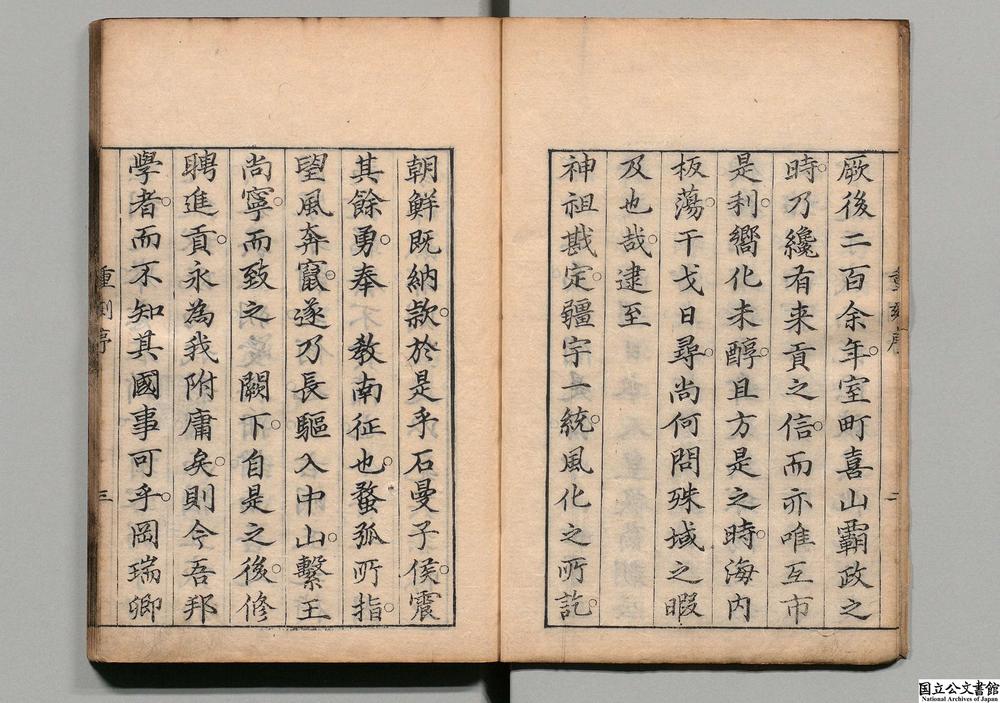 厥後二百余年。室町喜山霸政之
時。乃纔有来貢之信。而亦唯互市
是利。嚮化未醇。且方是之時。海内
板蕩。干戈日尋。尚何問殊域之暇
及也哉。逮至
神祖戡定。疆宇一統。風化之所訖。
朝鮮既納款。於是乎石曼子侯。震
其餘勇。奉教南征也。蝥弧所指。
望風奔竄。遂乃長驅入中山。繫王
尚寧。而致之闕下。自是之後。修
聘進貢。永為我附庸矣。則今吾邦
學者。而不知其國事可乎。岡瑞卿
重刻序
二
重刻序
三
国立公文書館
National Archives of Japan